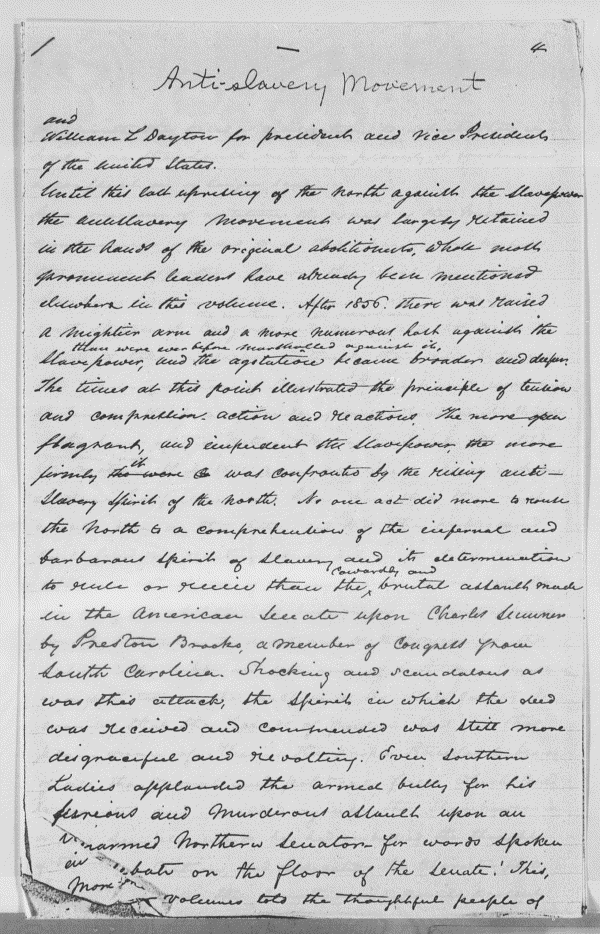 4
Anti-slavery Movement
and
William L Dayton for president and Vice President
of the United States.
Until this last uprising of the North against the Slavepower
the antislavery movement was largely retained
in the hands of the original abolitionists, whose most
prominent leaders have already been mentioned
elsewhere in this volume. After 1856. there was raised
a mightier arm and a more numerous host against the
than were ever before marshalled against it,
Slavepower, and the agitation became broader and deeper.
The times at this point illustrated the principle of tension
and compression. action and reaction. The more open
flagrant, and impudent the Slavepower the more
it
firmly the were was confronted by the rising anti-
Slavery Spirit of the North. No one act did more to rouse
the North to a comprehention of the infernal and
barbarous spirit of Slavery and its determination
cowardly and
to rule or ruin than the, brutal assault made
in the American Senate upon Charles Sumner
by Preston Brooks, a member of Congress from
South Carolina. Shocking and scandalous as
was this attack, the spirit in which the deed
was received and commended was still more
disgraceful and revolting. Even Southern
Ladies applauded the armed bully for his
ferocious and murderous assault upon an
unarmed Northern Senator for words spoken
in bate on the floor of the Senate! This,
more volumes told the thoughtful people of